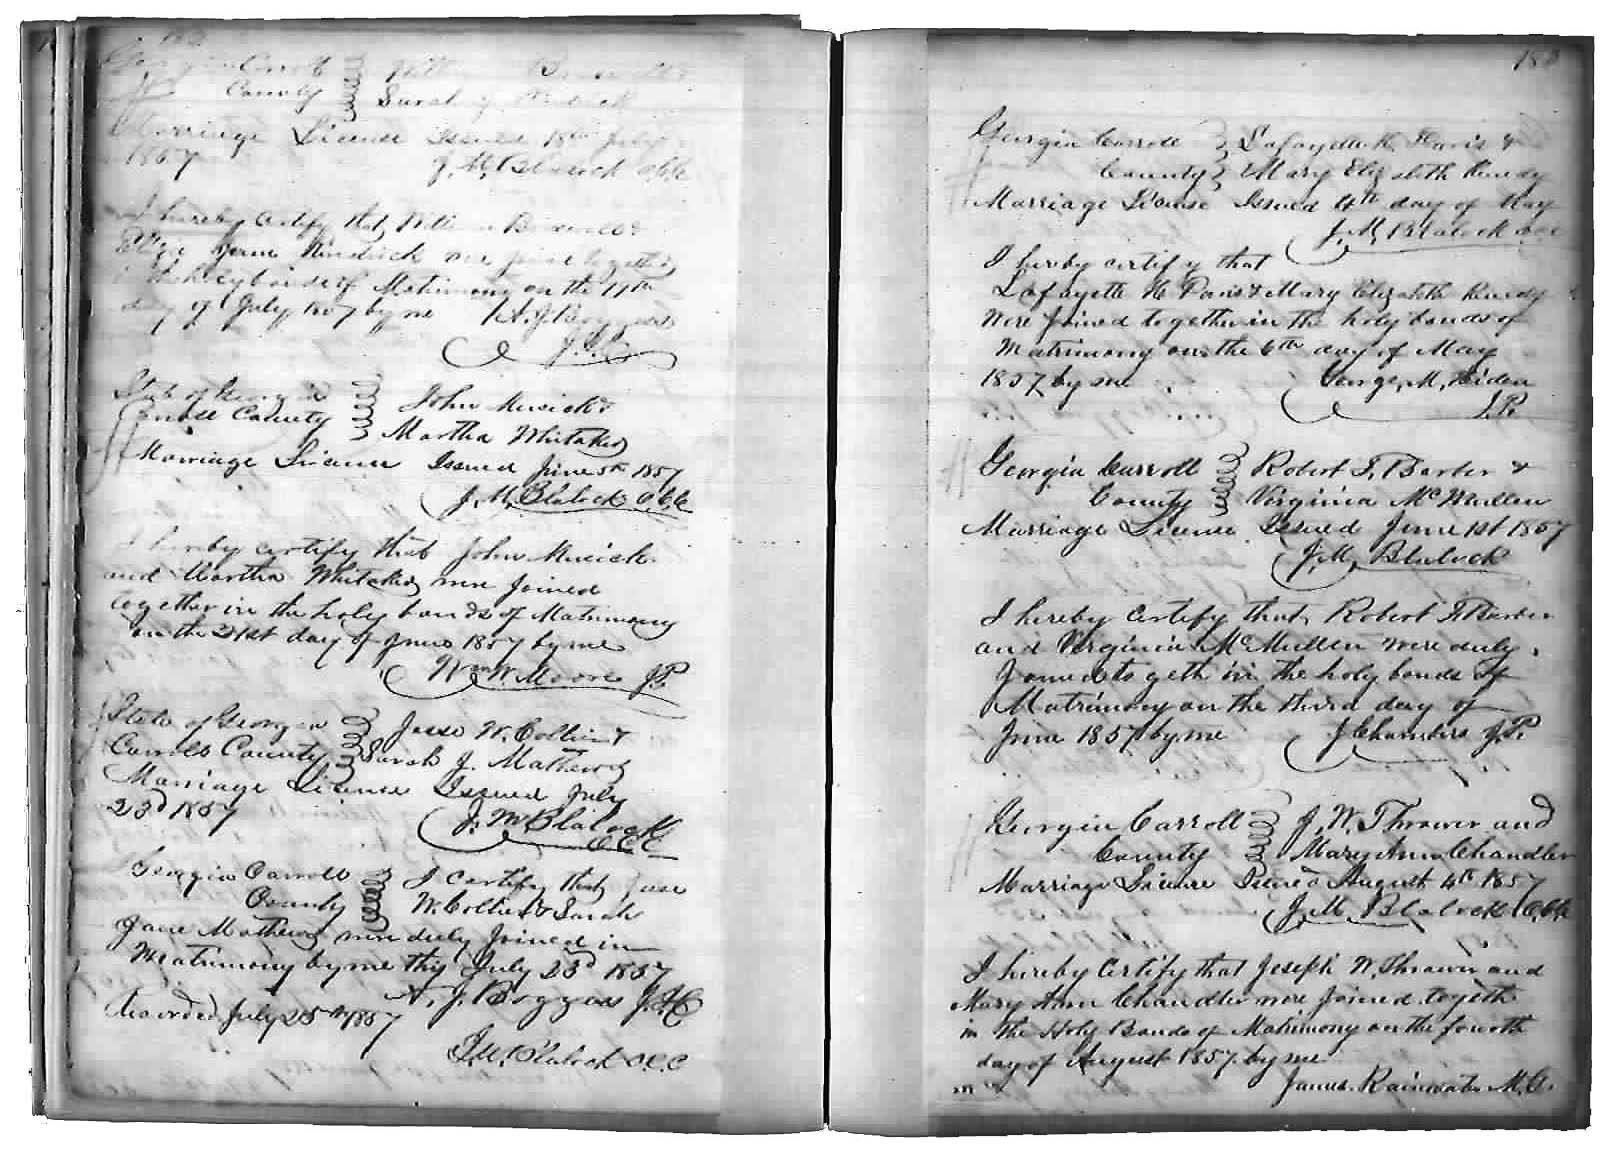 182
Georgia Carroll
County Sarah J.
Marriage License Issued 18th July
1857
J. M. Blalock C.C.O.
I hereby certify that William
Jane were joined together
in the holy bonds of Matrimony on the 19th
day of July 1857 by me A. J. Boggess
J.I.C.
State of Georgia
Carroll County John Musick &
Martha Whitaker
Marriage License Issued June 5th 1857
J. M. Blalock C.C.O.
I hereby certify that John Musick
and Martha Whitaker were Joined
together in the holy bonds of Matrimony
on the 21st day of June 1857 by me
Wm W. Moore J.P.
State of Georgia Jesse W. Collier &
Carroll County Sarah J. Mathews
Marriage License Issued July
23d 1857
J. M. Blalock
C.C.O.
Georgia Carroll I certify that Jesse
County W. Collier & Sarah
Jane Mathews were duly Joined in
Matrimony by me this July 23d 1857
A. J. Boggess J.I.C.
Recorded July 25th 1857
J. M. Blalock C.C.O.
183
Georgia Carroll Lafayette H. Davis &
County Mary Elizabeth
Marriage License Issued 4th day of May
J. M. Blalock C.C.O.
I hereby certify that
Lafayette H Davis & Mary Elizabeth
Were Joined together in the holy bonds of
Matrimony on the 6th day of May
1857 by me George M.
J.P.
Georgia Carroll Robert F. Barber &
County Virginia McMullen
Marriage License Issued June 1st 1857
J. M. Blalock
I hereby certify that Robert F. Barber
and Virginia McMullen were duly
Joined to geth in the holy bonds of
Matrimony on the third day of
June 1857 by me J Chambers J.P.
Georgia Carroll J. W. Thrower and
County Mary Ann Chandler
Marriage License Issued August 4th 1857
J. M. Blalock C.C.O.
I hereby Certify that Joseph W. Thrower and
Mary Ann Chandler were Joined togeth
in the Holy Bands of Matrimony on the fourth
day of August 1857 by me
James Rainwater M.G.